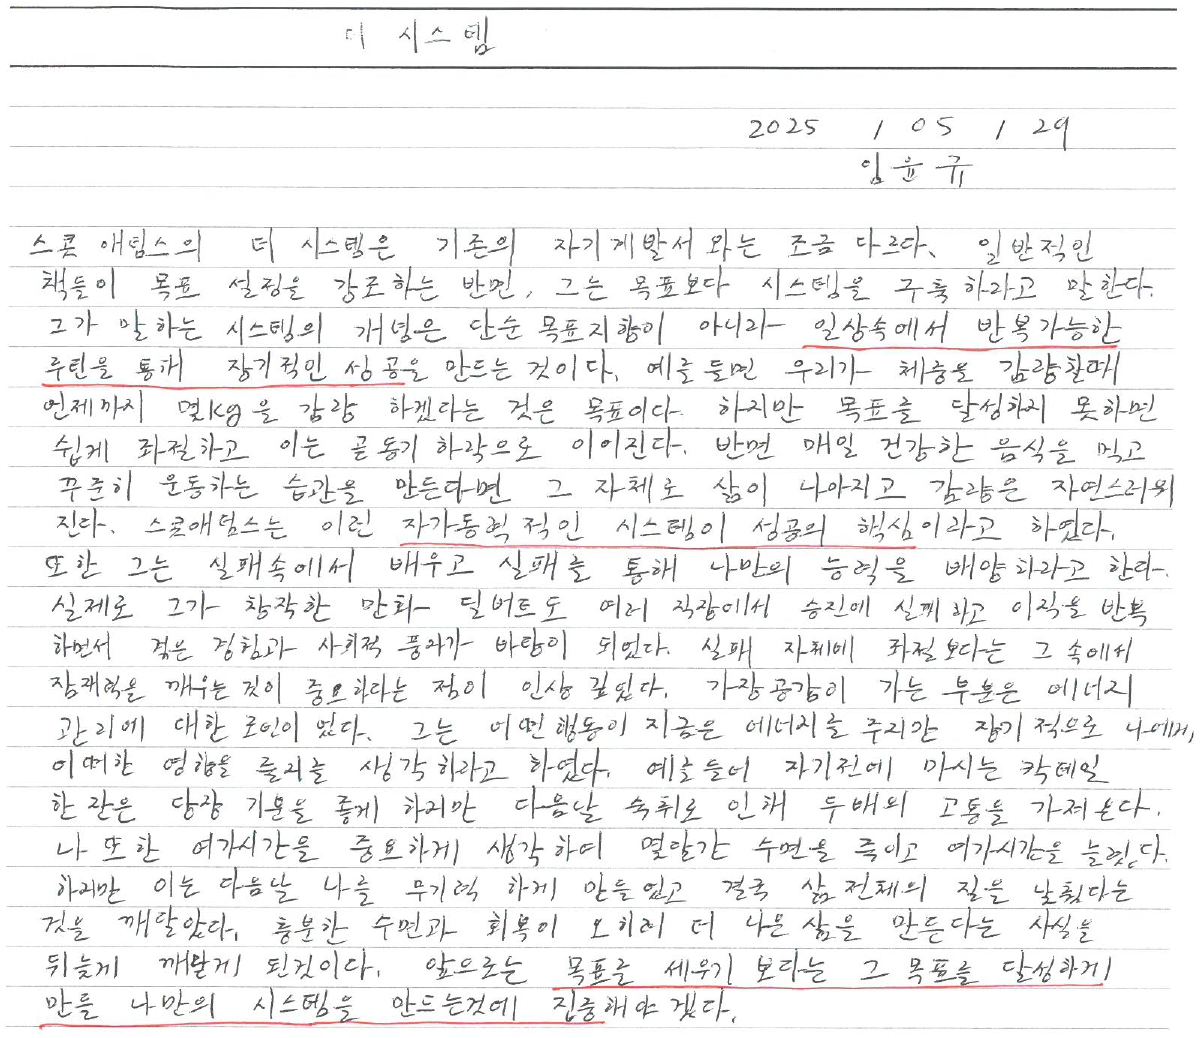 더 시스템
2025 / 05 / 29
임윤규
스콧 애덤스의 더 시스템은 기존의 자기계발서와는 조금 다르다. 일반적인
책들이 목표 설정을 강조하는 반면, 그는 목표보다 시스템을 구축하라고 말한다.
그가 말하는 시스템의 개념은 단순 목표지향이 아니라 일상속에서 반복가능한
루틴을 통해 장기적인 성공을 만드는 것이다. 예를들면 우리가 체중을 감량할때
언제까지 몇kg을 감량 하겠다는 것은 목표이다. 하지만 목표를 달성하지 못하면
쉽게 좌절하고 이는 곧 동기 하락으로 이어진다. 반면 매일 건강한 음식을 먹고
꾸준히 운동하는 습관을 만든다면 그 자체로 삶이 나아지고 감량은 자연스러워
진다. 스콧애덤스는 이런 자가동력적인 시스템이 성공의 핵심이라고 하였다.
또한 그는 실패속에서 배우고 실패를 통해 나만의 능력을 배양하라고 한다.
실제로 그가 창작한 만화 딜버트도 여러 직장에서 승진에 실패하고 이직을 반복
하면서 겪은 경험과 사회적 풍자가 바탕이 되었다. 실패 자체에 좌절보다는 그 속에서
잠재력을 깨우는것이 중요하다는 점이 인상 깊었다. 가장공감이 가는 부분은 에너지
관리에 대한 조언이었다. 그는 어떤행동이 지금은 에너지를 주지만 장기적으로 나에게
어떠한 영향을 줄지를 생각하라고 하였다. 예를들어 자기전에 마시는 칵테일
한 잔은 당장 기분을 좋게 하지만 다음날 숙취로 인해 두배의 고통을 가져온다.
나 또한 여가시간을 중요하게 생각하여 몇달간 수면을 죽이고 여가시간을 늘렸다.
하지만 이는 다음날 나를 무기력 하게 만들었고 결국 삶전체의 질을 낮췄다는
것을 깨달았다. 충분한 수면과 회복이 오히려 더 나은삶을 만든다는 사실을
뒤늦게 깨닫게 된것이다. 앞으로는 목표를 세우기 보다는 그 목표를 달성하게
만들 나만의 시스템을 만드는것에 집중해야 겠다.